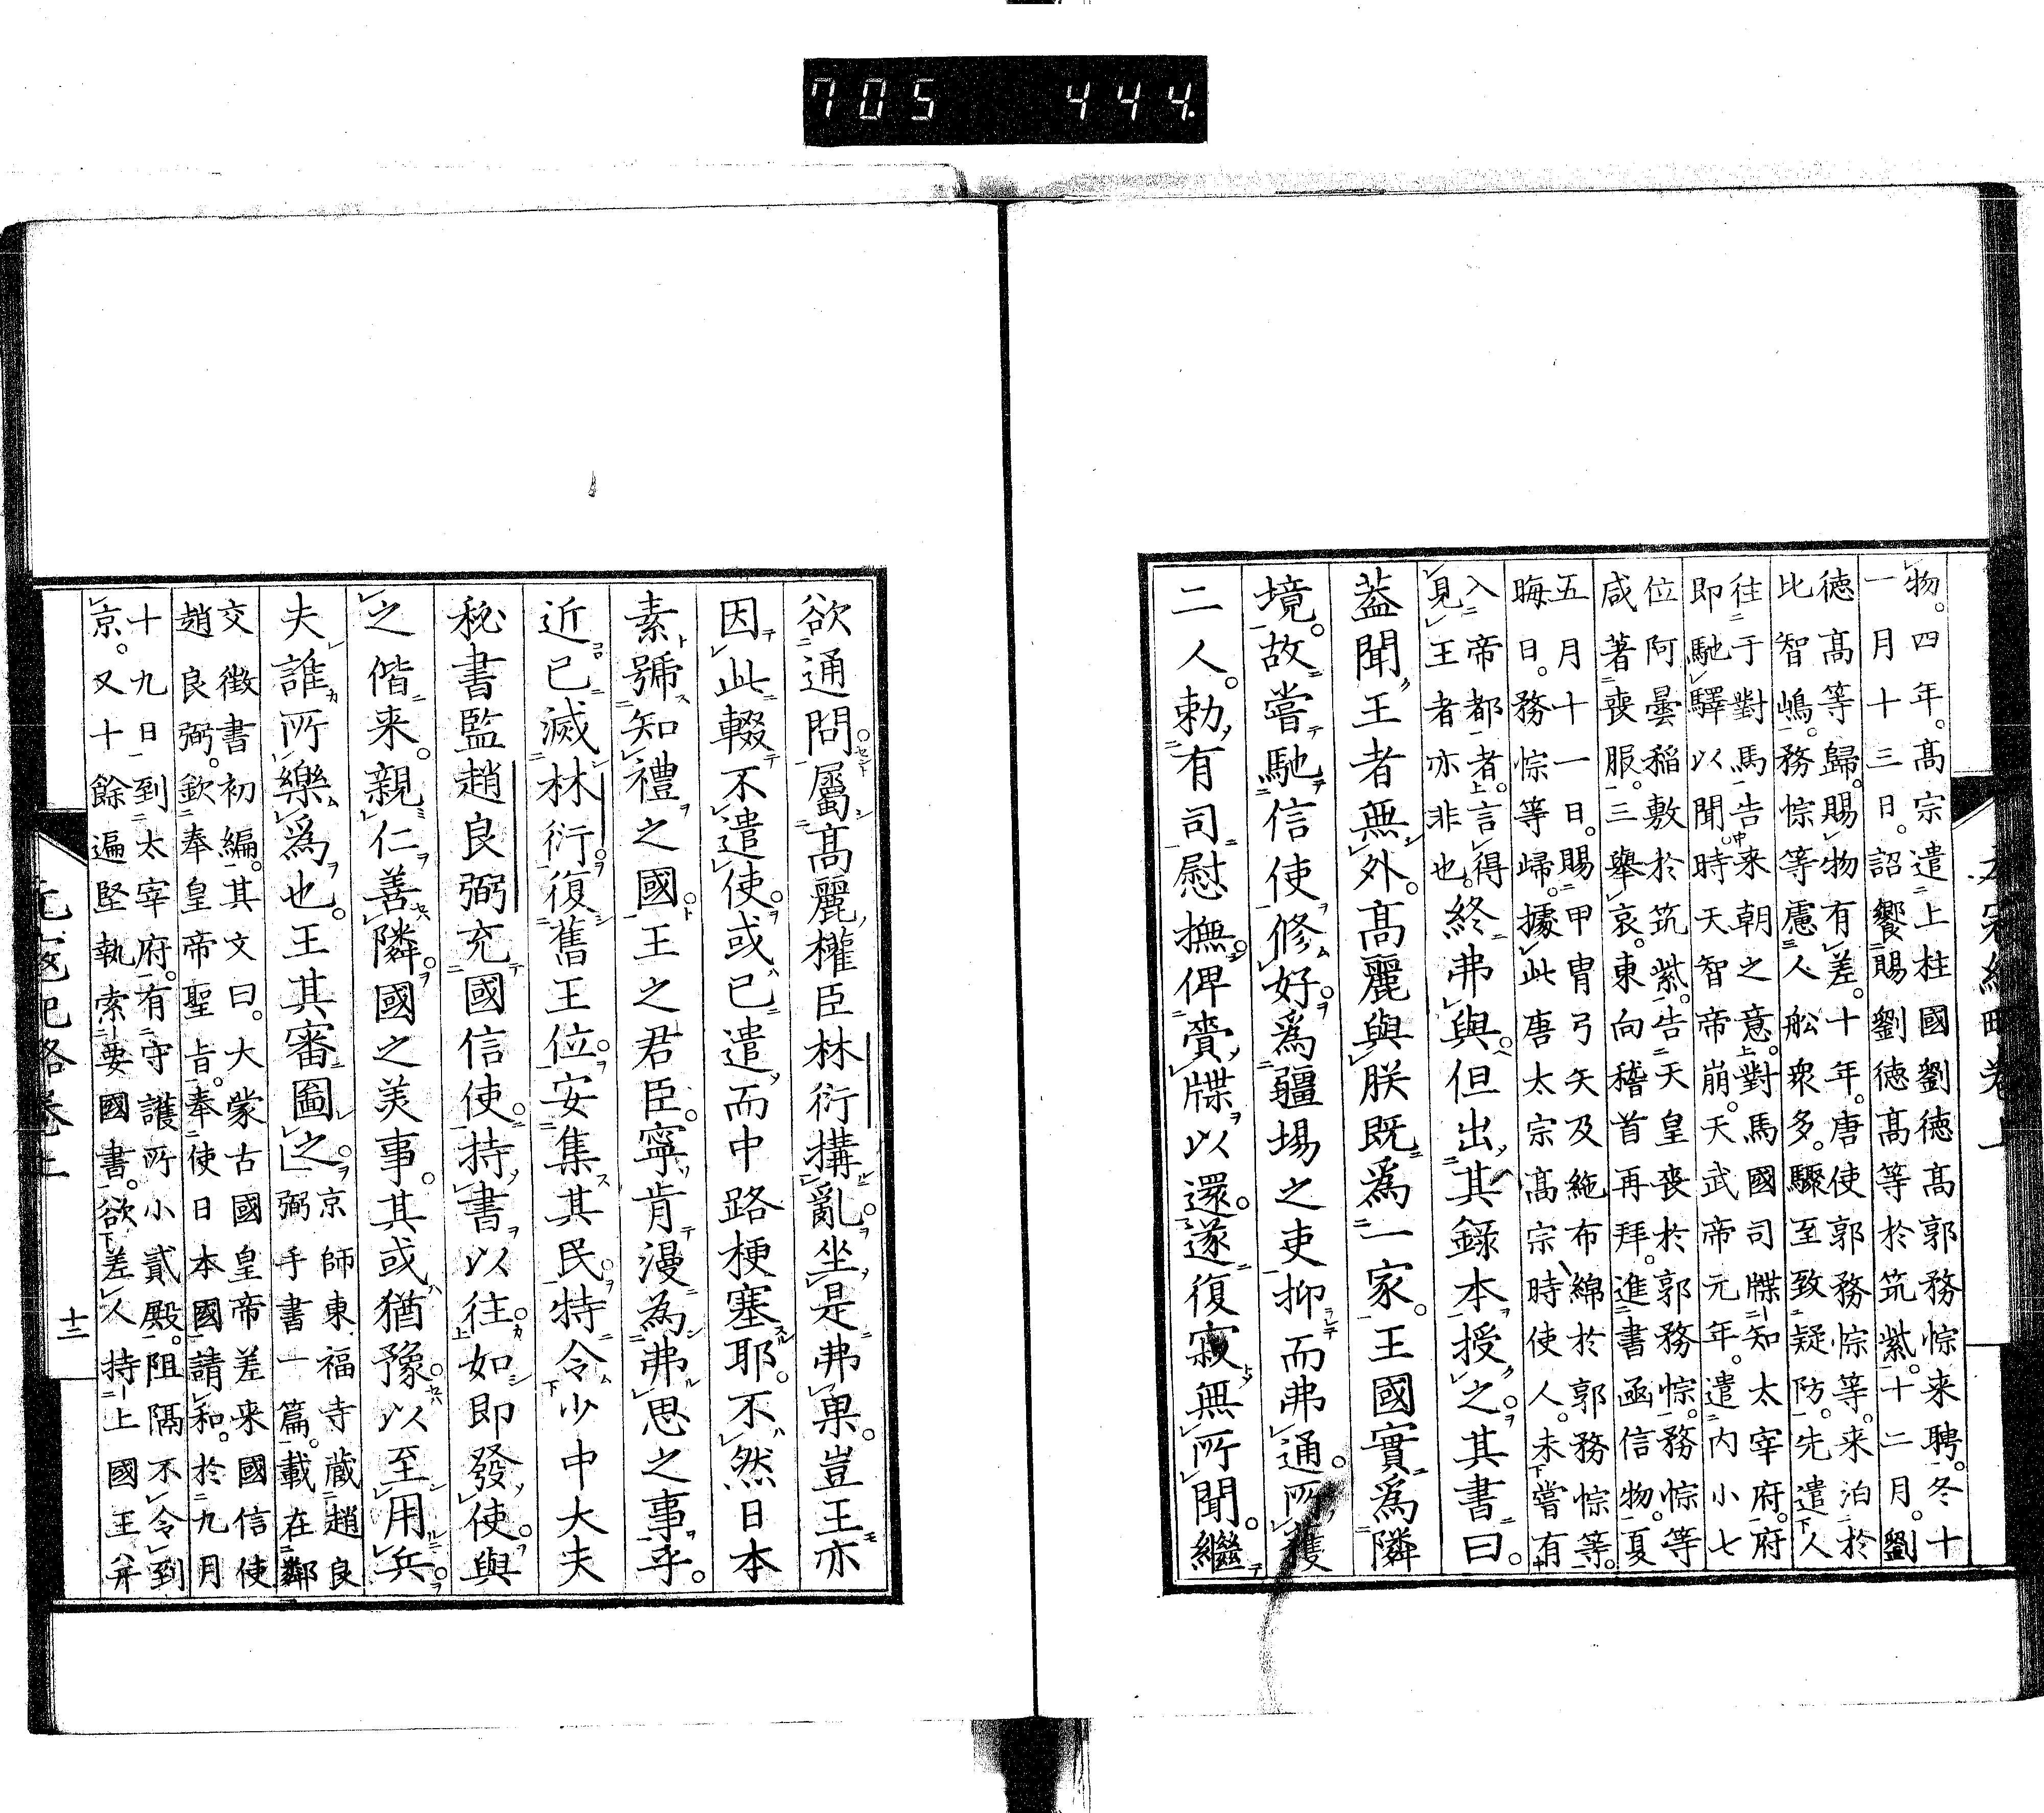 705 444.
物。四年。髙宗遣上柱國劉德髙郭務悰来聘。冬十
一月十三日。詔饗賜劉德髙等於筑紫。十二月。劉
德髙等歸。賜物有差。十年。唐使郭務悰等。来泊於
比智嶋。務悰等慮人舩衆多。驟至致疑防。先遣人
往于對馬告来朝之意。對馬國司牒知太宰府。府
即馳驛以聞。時天智帝崩。天武帝元年。遣内小七
位阿曇稲敷於筑紫。告天皇喪於郭務悰。務悰等
咸著喪服。三舉哀。東向稽首再拜。進書函信物。夏
五月十一日。賜甲冑弓矢及絁布綿於郭務悰等。
晦日。務悰等歸。據此唐太宗髙宗時使人。未嘗有
入帝都者。言得
見王者亦非也。終弗與。但出其錄本授之。其書曰。
葢聞王者無外。高麗與朕既爲一家。王國實爲隣
境。故嘗馳信使修好。爲疆場之吏抑而弗通。所獲
二人。勅有司慰撫。俾賫牒以還。遂復寂無所聞。繼
欲通問。屬高麗權臣林衍搆亂。坐是弗果。豈王亦
因此輟不遣使。或已遣而中路梗塞耶。不然日本
素號知禮之國。王之君臣。寧肯漫為弗思之事乎。
近已滅林衍。復舊王位。安集其民。特令少中大夫
秘書監趙良弼充國信使。持書以往。如即發使與
之偕来。親仁善隣。國之美事。其或猶豫以至用兵
夫誰所樂爲也。王其審圖之。京師東福寺藏趙良
弼手書一篇。載在鄰
交徵書初編。其文曰。大蒙古國皇帝差来國信使
趙良弼。欽奉皇帝聖旨。奉使日本國請和。於九月
十九日。到太宰府。有守護所小貳殿。阻隔不令到
京。又十餘遍堅執索要國書。欲差人持上國王并
元寇紀略卷上
十三